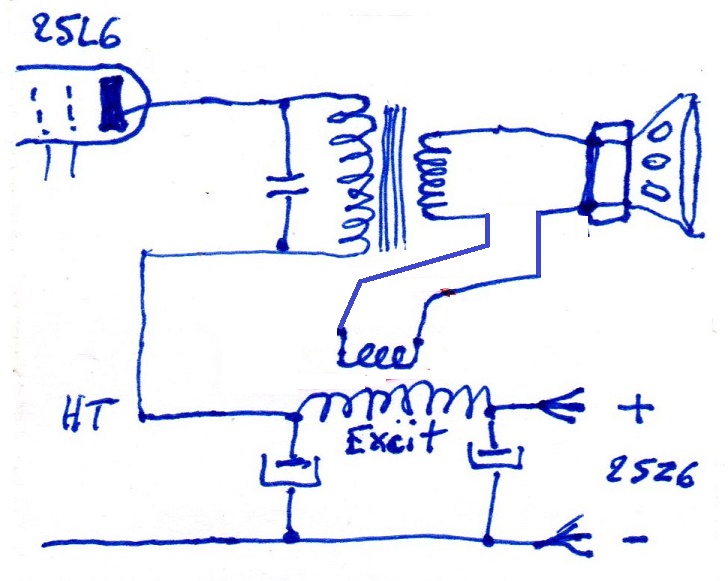 25L6
HT
Excit
+
25Z6
-